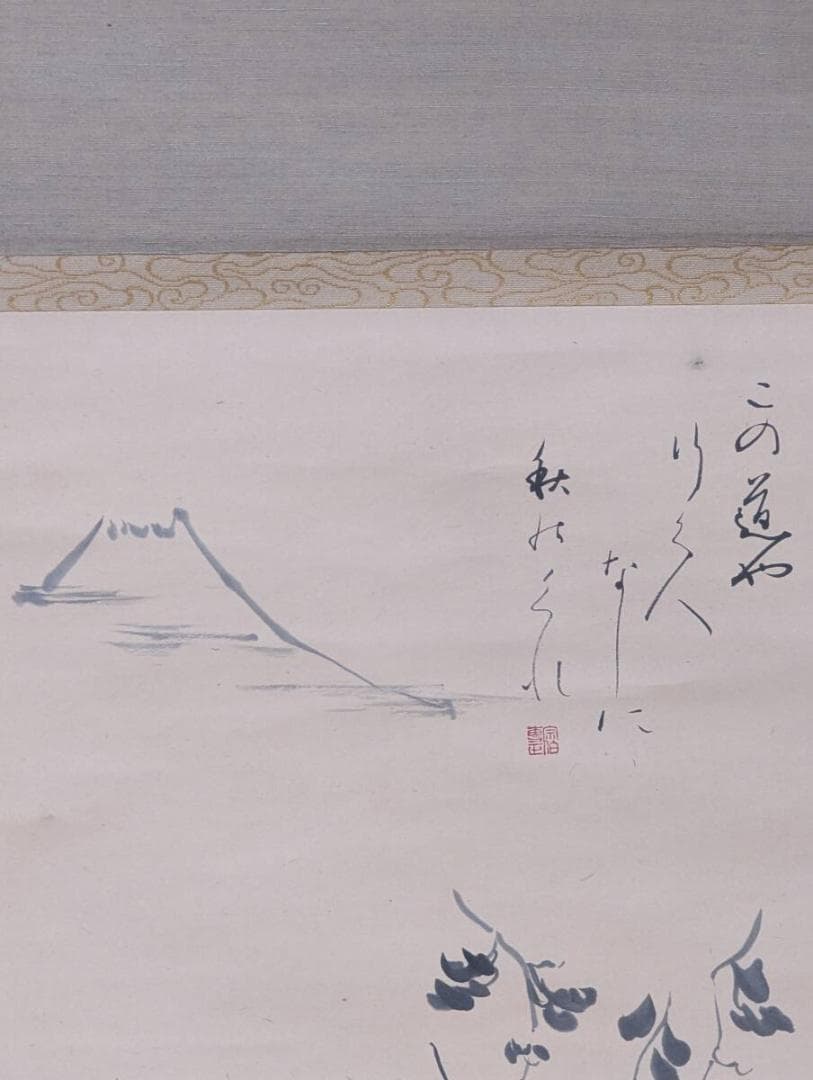 この道や
行く人
なしに
秋のくれ